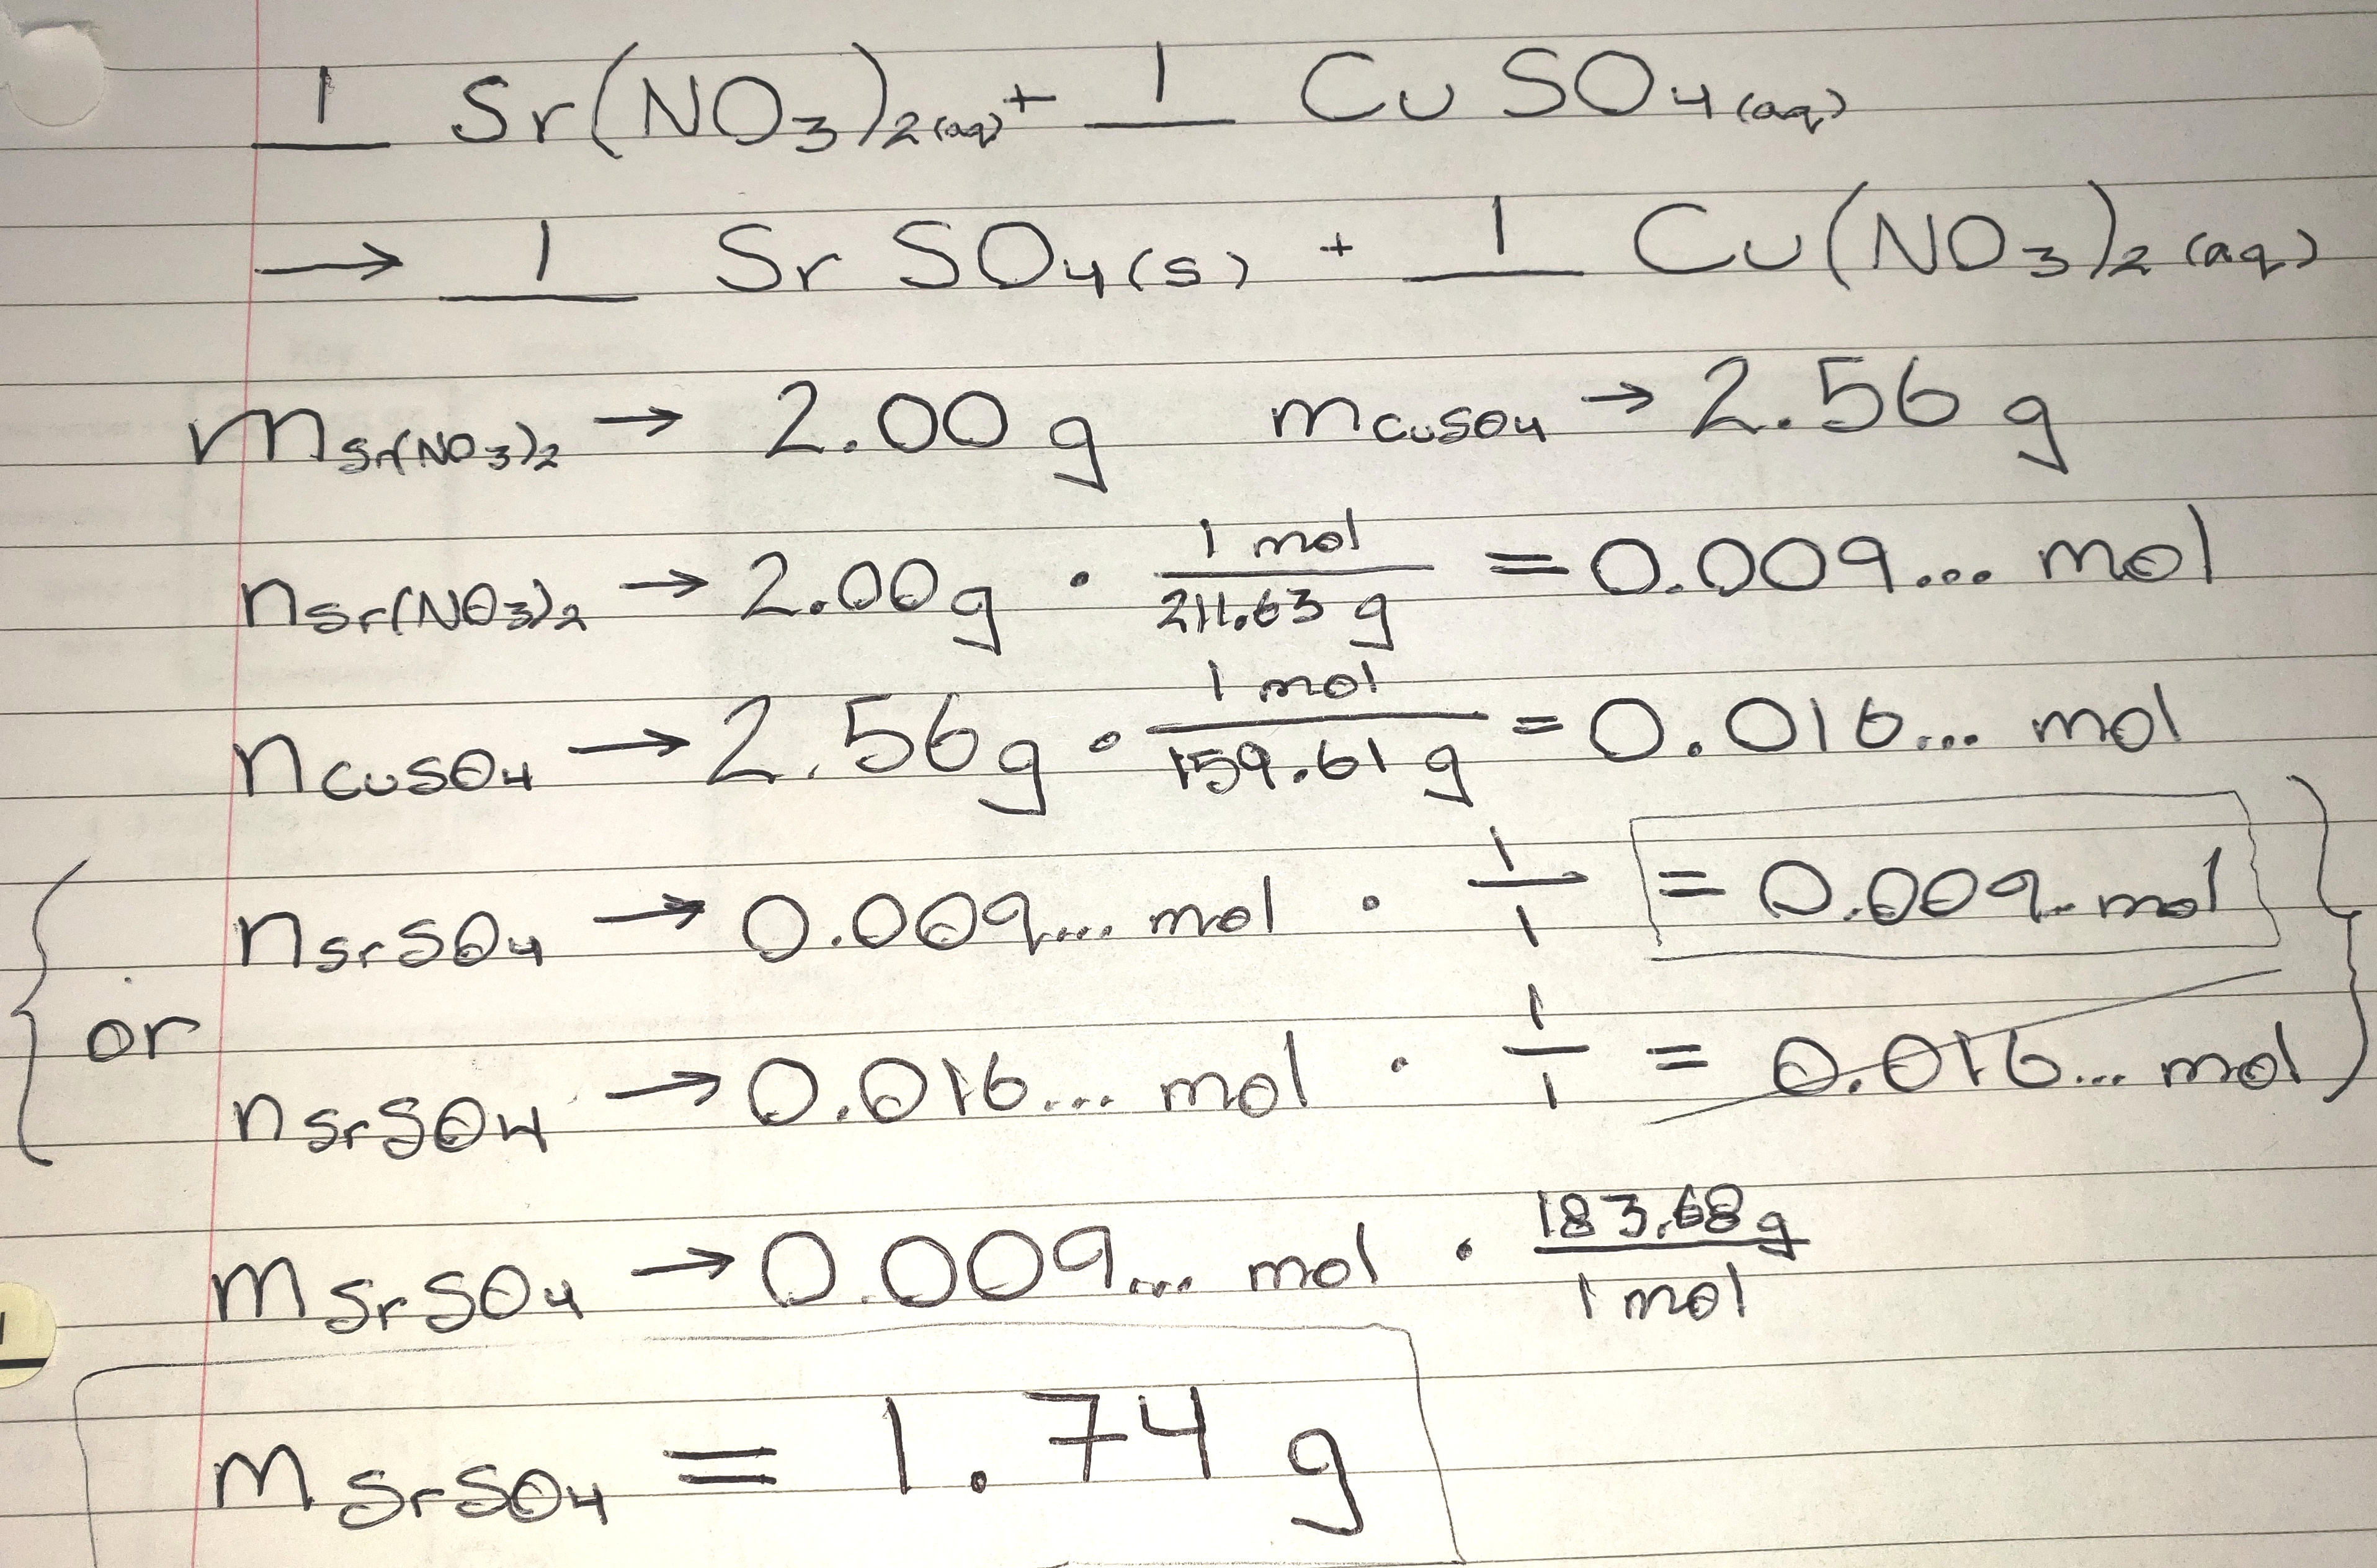 1 Sr(NO3)2(aq) + 1 CuSO4(aq)
→ 1 SrSO4(s) + 1 Cu(NO3)2(aq)
mSr(NO3)2 → 2.00 g mCuSO4 → 2.56 g
nSr(NO3)2 → 2.00g · 1 mol/211.63 g = 0.009... mol
nCuSO4 → 2.56g · 1 mol/159.61 g = 0.016... mol
nSrSO4 → 0.009... mol · 1/1 = 0.009... mol
or
nSrSO4 → 0.016... mol · 1/1 = 0.016... mol
mSrSO4 → 0.009... mol · 183.68 g/1 mol
mSrSO4 = 1.74 g